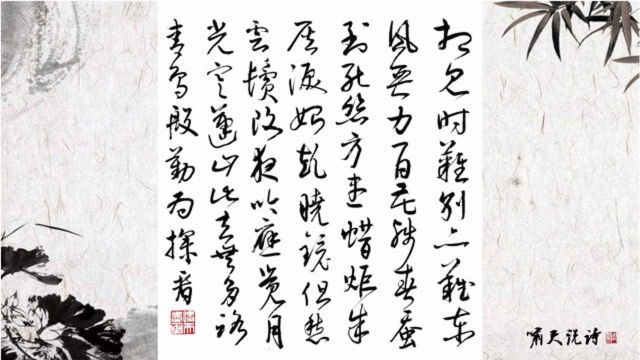 相见时難别亦難东
風无力百花残春蚕
到死丝方尽蜡炬成
灰泪始乾晓镜但愁
雲鬓改夜吟應觉月
光寒蓬山此去無多路
青鸟殷勤为探看
嘯天说诗